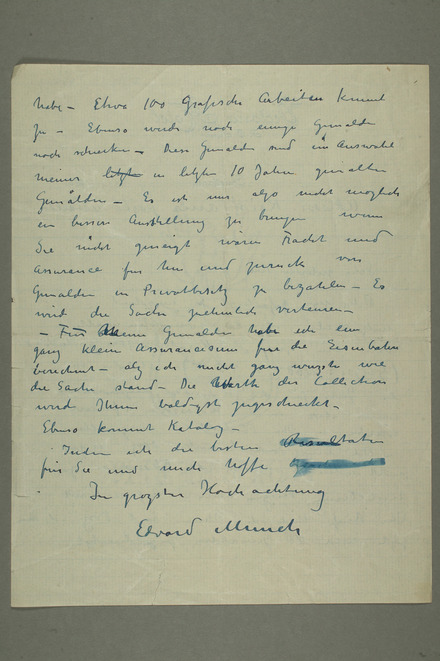 habe – Etwa 100 Grafische Arbeiten kommt
zu – Ebenso werde noch einige Gemälden
noch schicken – Diese Gemälden sind ein Auswahl
meiner letzte in letzten 10 Jahren gemalten
Gemälden – Es ist mir also nicht möglich
ein bessere Austellung zu bringen wenn
Sie nicht geneigt wären Fracht und
Assurance für hin und zurück von
Gemälden in Privatbesitz zu bezahlen – Es
wird die Sache ziemlich verteuren –
– Für Meine Gemälden habe ich ein
ganz klein Assurancesum für die Eisenbahn
berechnet – als ich nicht ganz wusste wie
die Sache stand – Die Werth der Collection
wird Ihnen baldigst zugeschickt –
Ebenso kommt Katalog –
Indem ich die besten Resultaten
für Sie und mich hoffe
In grozster Hochachtung
Edvard Munch